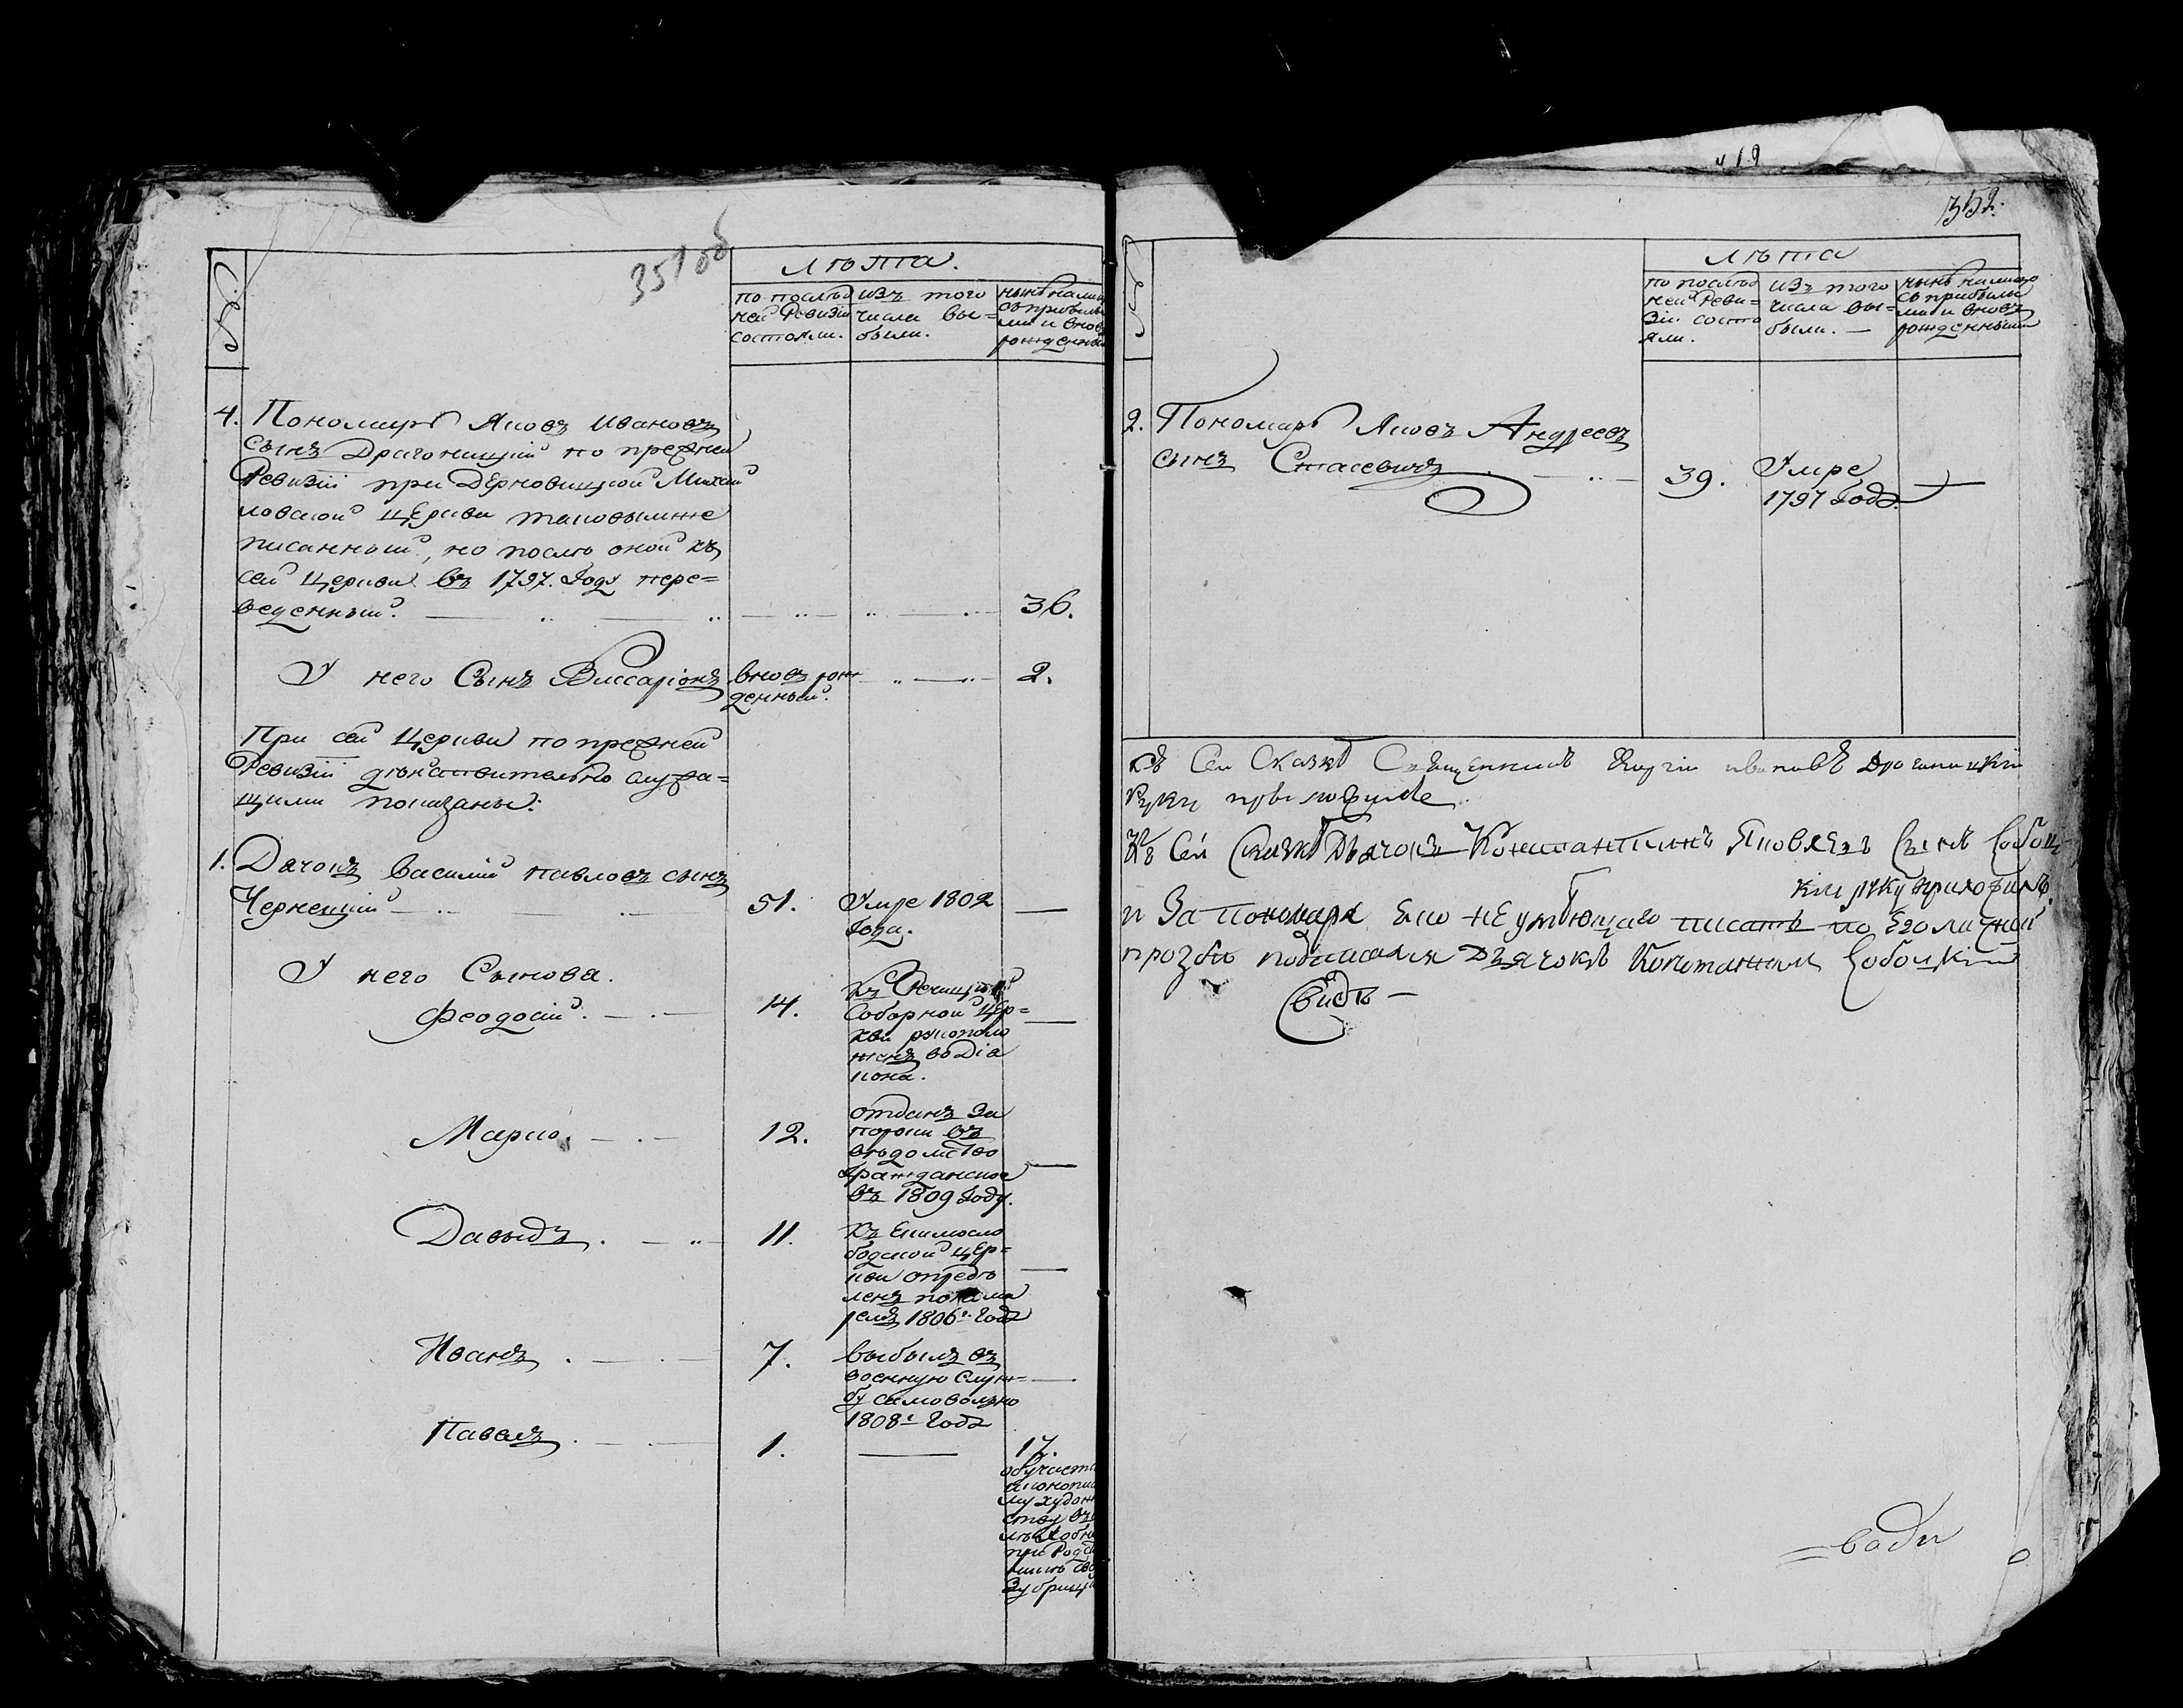 351 об
№
Лѣта.
по послѣд
ней Ревизіи
состояли.
изъ того
числа вы=
были.
нынѣ на лицо
съ прибылы
ми и вновь
рожденны
4. Пономарь Яковъ Ивановъ
сынъ Драгоницкій по прежней
Ревизіи при Дерновицкой Михай
ловской Церкви таковымже
писанный, но послѣ оной къ
сей Церкви въ 1797. Году пере=
веденный.
36.
У него Сынъ Виссаріонъ
вновь рож
денный.
2.
При сей Церкви по прежней
Ревизіи дѣйствительно служа=
щими показаны:
1. Дячокъ Василий павловъ сынъ
Чернецкій
51.
Умре 1802
Года.
У него Сынова.
Феодосій.
14.
Соборной Цер=
кви рукополо
женъ во Діа
кона.
Марко.
12.
отданъ за
пороки въ
вѣдомство
Гражданское
въ 1809 Году.
Давыдъ.
11.
бодской Цер=
кви опредѣ
ленъ понама
ремъ 1806г. Года
Иванъ.
7.
выбылъ въ
военную Служ=
бу самовольно
1808г Года
Павелъ.
1.
17.
обучаетс
иконопис
му худож
ству въ
при Род
419
352.
№
Лѣта
по послѣд
ней Реви=
зіи состо
яли.
изъ того
числа вы=
были.
нынѣ налицо
съ прибылы
ми и вновь
рожденными
2. Пономарь Яковъ Андреевъ
сынъ Стасевичъ
39.
Умре
1797 Года.
Къ Сей Сказкѣ Священникъ Георгій ивановъ Драгоницкій
Руку приложиле
Къ Сей Сказкѣ Дьячокъ Константинъ Яковлевъ Сынъ Собоц
кій руку приложилъ.
и За пономаря Его неумѣющаго писать по Его личной
прозбѣ подписался Дьячокъ Константин Собоцкій
=води